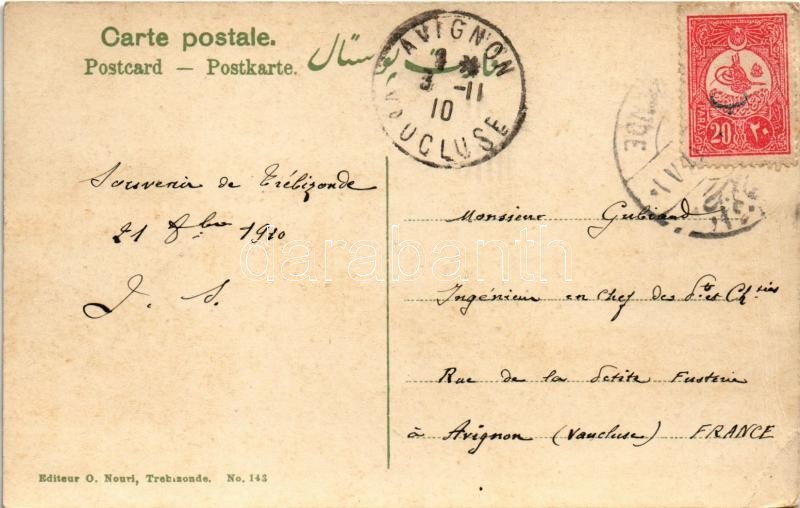 Carte postale.
Postcard — Postkarte.
AVIGNON
3 -11
10
VAUCLUSE
20
٢٠
PARAS
Souvenir de Trébizonde
21 8bre 1910
J. S.
Monsieur
Ingénieur en Chef des Pts et Chées
Rue de la Petite Fusterie
à Avignon (Vaucluse) FRANCE
darabanth
Editeur O. Nouri, Trebizonde. No. 143